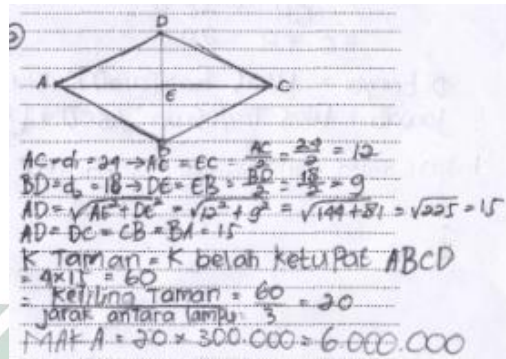 D
A
E
C
B
AC = d₁ = 24 → AE = EC = AC/2 = 24/2 = 12
BD = d₂ = 18 → DE = EB = BD/2 = 18/2 = 9
AD = √AE² + DE² = √12² + 9² = √144 + 81 = √225 = 15
AD = DC = CB = BA = 15
K Taman = K belah ketupat ABCD
= 4x15 = 60
= keliling Taman / jarak antara lampu = 60/3 = 20
MAKA = 20 x 300.000 = 6.000.000